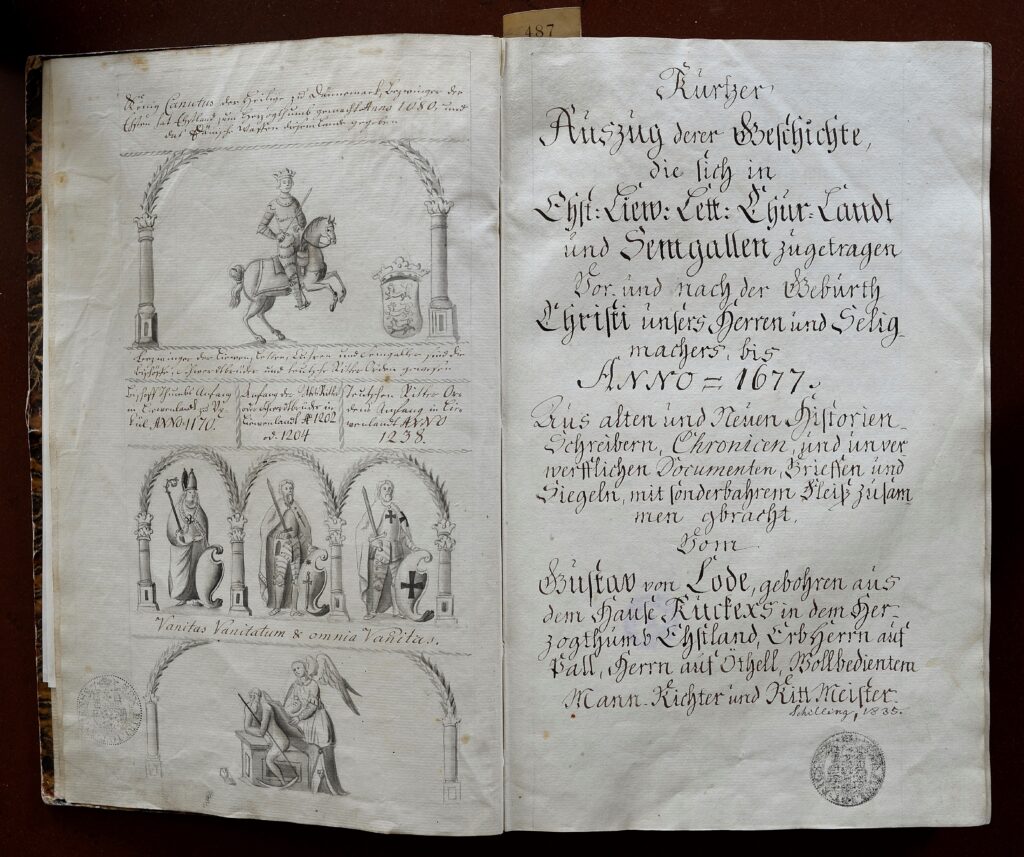 487
König Canutus der Heilige zu Dännemarck, Bezwinger der
Ehsten hat Ehstland zum Herzogthumb gemacht Anno 1080, und
das Dänische Wapen derem Lande gegeben
Bezwinger der Liewen, Letten, Curen und Semgaller sind die
Bischöffe, Schwerdtbrüder und teutsche Ritter Orden gewesen
Bischoffthumbs Anfang
in Liewenlandt zu
ANNO 1170.
Anfang der
oder Schwerdtbrüder in
Liewenlandt Aº 1202
od. 1204
Teutschen Ritter Or-
dens Anfang in Lie-
wenlandt ANNO
1238.
Vanitas Vanitatum & omnia Vanitas.
Kurtzer
Auszug derer Geschichte,
die sich in
Ehst: Liew: Lett: Chur: Landt
und Semgallen zugetragen
Vor und nach der Gebürth
Christi unsers Herren und Selig
machers, bis
ANNO = 1677.
Aus alten und Neuen Historien
Schreibern, Chronicen, und unver
werfflichen Documenten, Brieffen und
Siegeln, mit sonderbahrem Fleiß zusam
men gbracht.
Vom
Gustav von Lode, gebohren aus
dem Hause Kuckers in dem Her-
zogthumb Ehstland, ErbHerrn auf
Pall, Herrn auf Öthell, Wollbedientem
Mann-Richter und RittMeister.
Schilling, 1835.